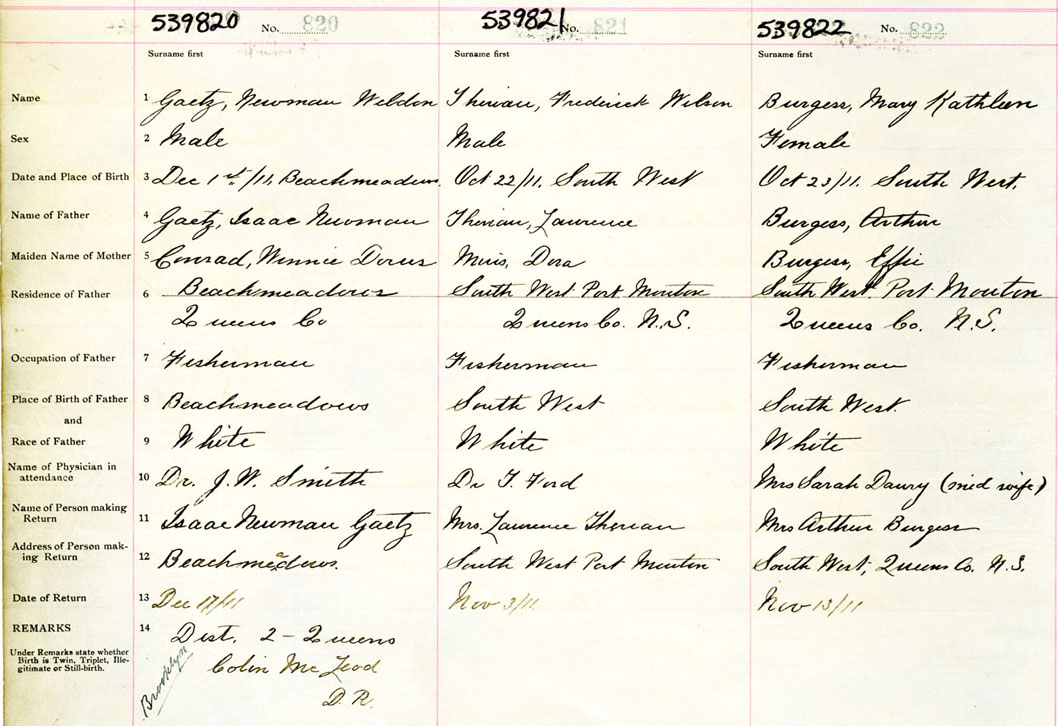 539820 No. 820 539821 No. 821 539822 No. 822
Surname first Surname first Surname first
Name 1 Gaetz, Newman Weldon Therian, Frederick Wilson Burgess, Mary Kathleen
Sex 2 Male Male Female
Date and Place of Birth 3 Dec 1st/11, Beachmeadows. Oct 22/11. South West Oct 23/11. South West.
Name of Father 4 Gaetz, Isaac Newman Therian, Lawrence Burgess, Arthur
Maiden Name of Mother 5 Conrad, Winnie Dora Burgess, Effie
Residence of Father 6 Beachmeadows South West Port Mouton South West. Port Mouton
Queens Co Queens Co. N.S. Queens Co. N.S.
Occupation of Father 7 Fisherman Fisherman Fisherman
Place of Birth of Father 8 Beachmeadows South West South West.
and
Race of Father 9 White White White
Name of Physician in
attendance 10 Dr. J.W. Smith Dr T. Ford Mrs Sarah Daury (mid wife)
Name of Person making
Return 11 Isaac Newman Gaetz Mrs. Lawrence Therian Mrs Arthur Burgess
Address of Person mak-
ing Return 12 Beachmeadows. South West Port Mouton South West, Queens Co. N.S.
Date of Return 13 Dec 17/11 Nov 3/11. Nov 13/11
REMARKS 14 Dist. 2 – Queens
Under Remarks state whether
Birth is Twin, Triplet, Ille-
gitimate or Still-birth.
Colin McLeod
D.R.
Brooklyn